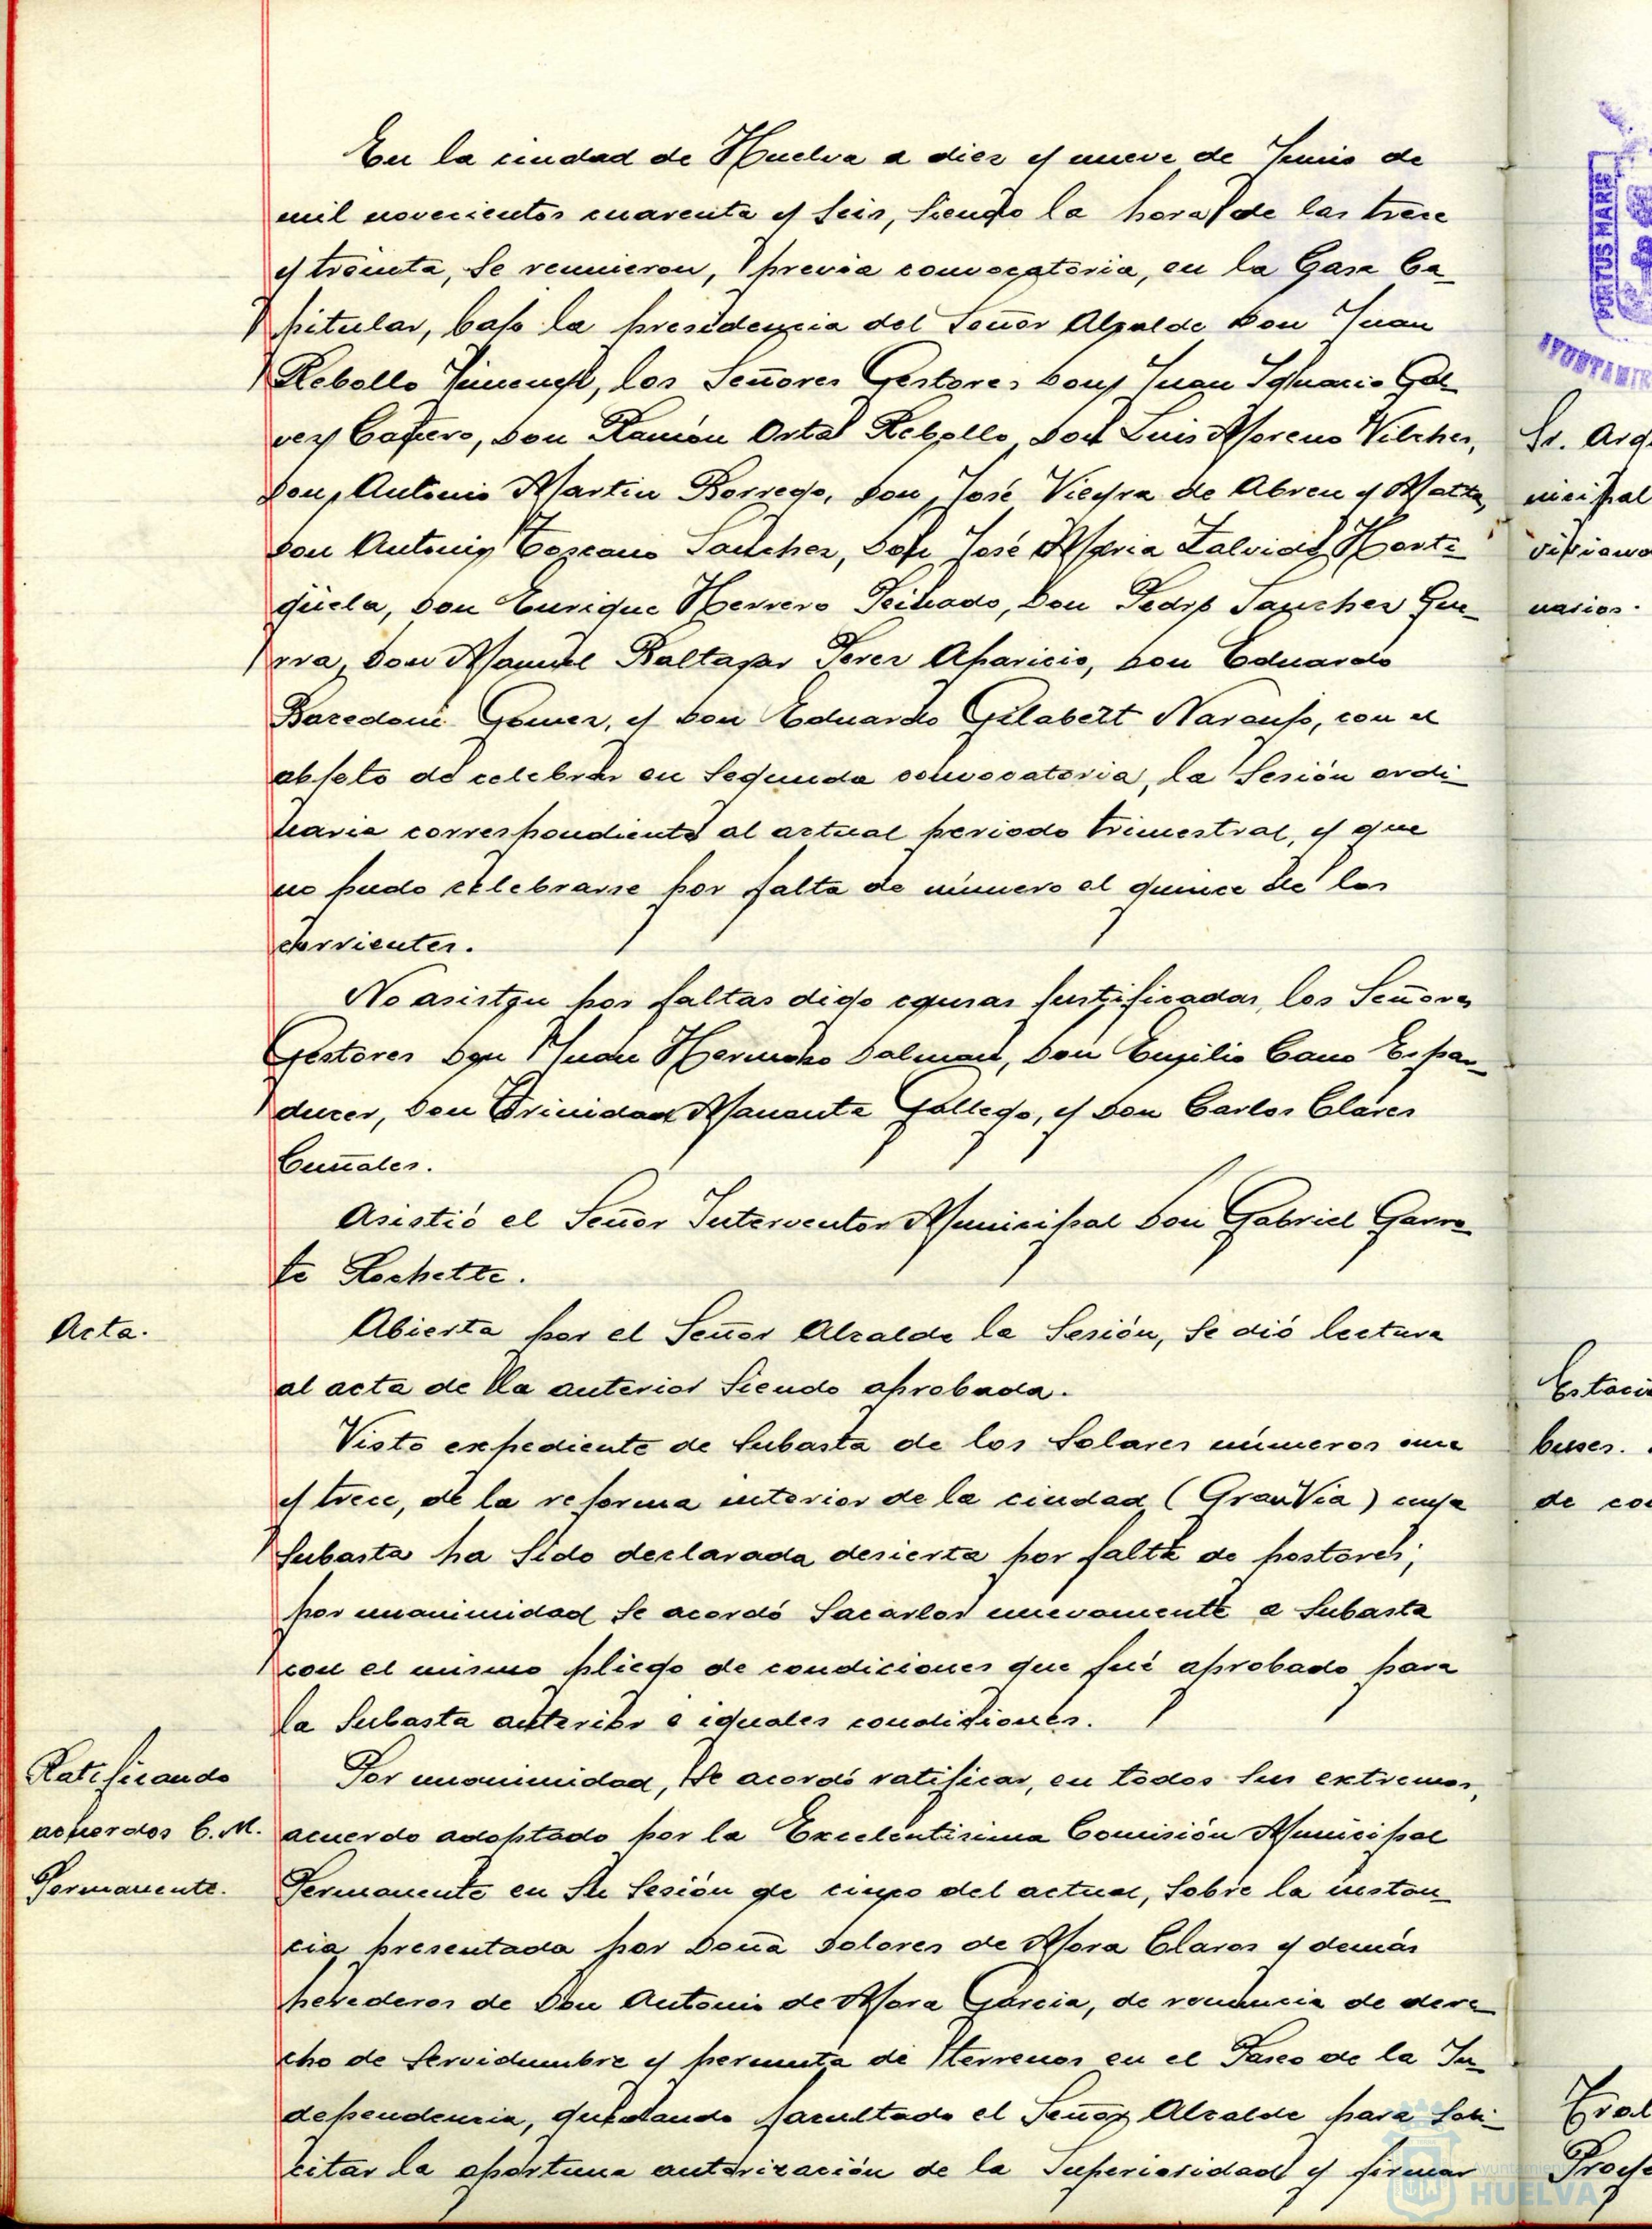 En la ciudad de Huelva a diez y nueve de Junio de
mil novecientos cuarenta y seis, siendo la hora de las trece
y treinta, se reunieron, previa convocatoria, en la Casa Ca-
pitular, bajo la presidencia del Señor Alcalde Don Juan
Rebollo Jimenez, los Señores Gestores Don Juan Ignacio Gal-
vez Cañero, Don Ramón Ortal Rebollo, Don Luis Moreno Vilches,
Don Antonio Martin Borrego, Don José Vieyra de Abreu y Matta,
Don Antonio Toscano Sanchez, Don José Maria Zalvide Horti-
güela, Don Enrique Herrero Peinado, Don Pedro Sanchez Gue-
rra, Don Manuel Baltasar Perez Aparicio, Don Eduardo
Bacedoni Gomez, y Don Eduardo Gelabert Naranjo, con el
objeto de celebrar en segunda convocatoria, la sesión ordi-
naria correspondiente al actual periodo trimestral, y que
no pudo celebrarse por falta de número el quince de los
corrientes.
No asisten por faltas digo causas justificadas, los Señores
Gestores Don Juan Hermoso Dalmau, Don Emilio Cano Espan-
ducer, Don Trinidad Manante Gallego, y Don Carlos Clares
Cuñales.
Asistió el Señor Interventor Municipal Don Gabriel Garro-
te Rochette.
Acta.
Abierta por el Señor Alcalde la Sesión, se dió lectura
al acta de la anterior siendo aprobada.
Visto expediente de subasta de los solares números once
y trece, de la reforma interior de la ciudad (Gran Via) cuya
subasta ha sido declarada desierta por falta de postores;
por unanimidad se acordó sacarlos nuevamente a subasta
con el mismo pliego de condiciones que fué aprobado para
la subasta anterior e iguales condiciones.
Ratificando
acuerdos C. M.
Permanente.
Por unanimidad, se acordó ratificar, en todos sus extremos,
acuerdo adoptado por la Excelentisima Comisión Municipal
Permanente en su sesión de cinco del actual, sobre la instan-
cia presentada por Doña Dolores de Mora Claros y demás
herederos de Don Antonio de Mora Garcia, de renuncia de dere-
cho de servidumbre y permuta de terrenos en el Paseo de la In-
dependencia, quedando facultado el Señor Alcalde para soli-
citar la oportuna autorización de la Superioridad y firmar
PORTUS MARIS
AYUNTAMIE
Sr. Arq
nicipal
visiona
narios.
Estaci
buses.
de co
Proye
Ayuntamiento
HUELVA